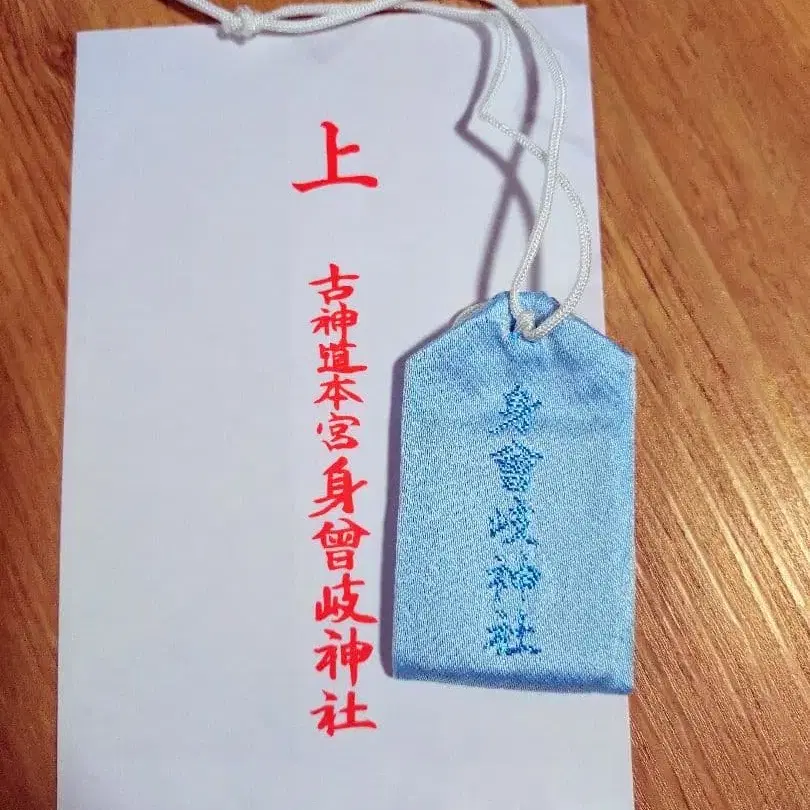 上
古神道本宮身曾岐神社
身曾岐神社